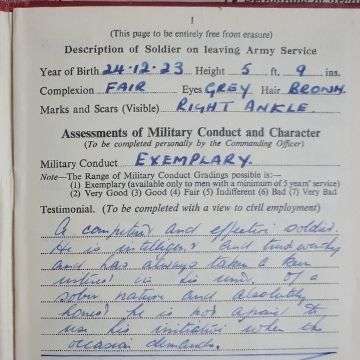 1
(This page to be entirely free from erasure)
Description of Soldier on leaving Army Service
Year of Birth 24·12·23 Height 5 ft. 9 ins.
Complexion FAIR Eyes GREY Hair BROWN.
Marks and Scars (Visible) RIGHT ANKLE.
Assessments of Military Conduct and Character
(To be completed personally by the Commanding Officer)
Military Conduct EXEMPLARY.
Note—The Range of Military Conduct Gradings possible is:—
(1) Exemplary (available only to men with a minimum of 5 years' service)
(2) Very Good (3) Good (4) Fair (5) Indifferent (6) Bad (7) Very Bad
Testimonial. (To be completed with a view to civil employment)
A competent and effective soldier.
He is intelligent and trustworthy
and has always taken a keen
interest in his unit. Of a
sober nature and absolutely
honest he is not afraid to
use his initiative when the
occasion demands.